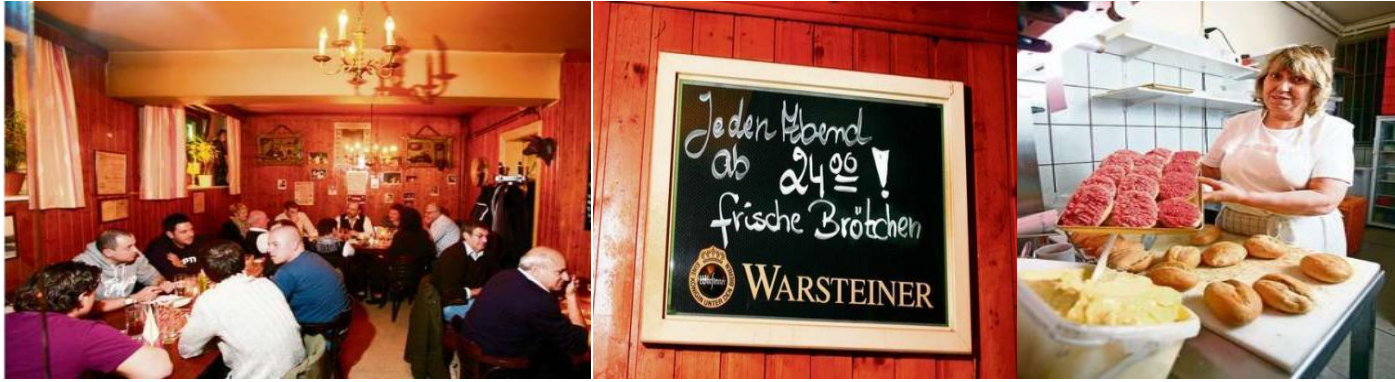 Jeden Abend
ab 24 00 !
frische Brötchen
Warsteiner
WARSTEINER